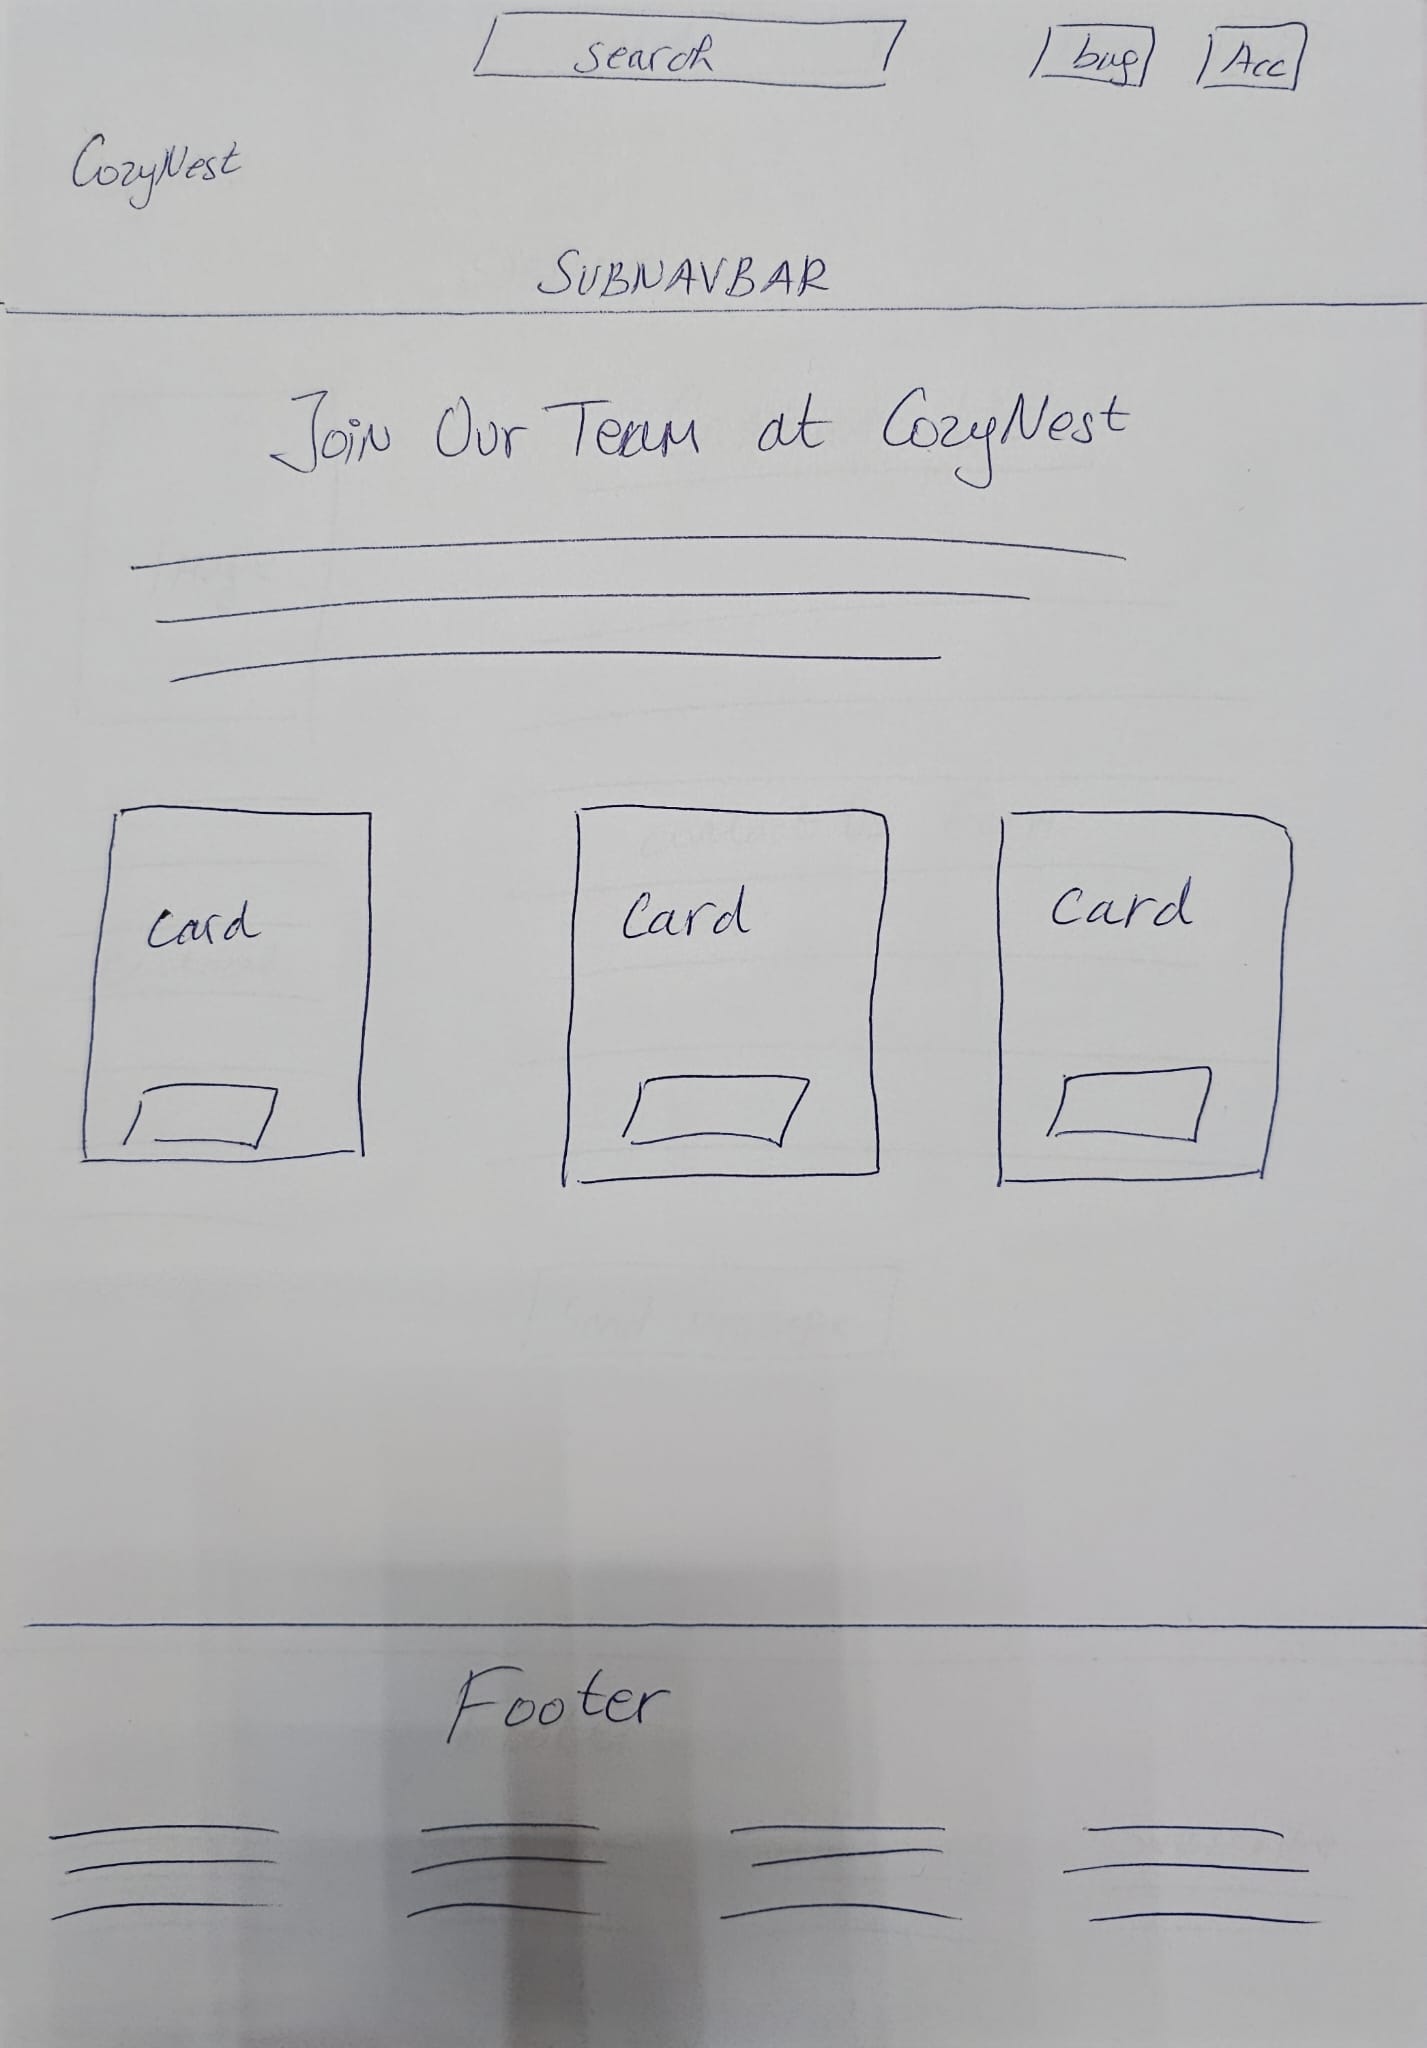 search bag Acc
CozyNest
SUBNAVBAR
Join Our Team at CozyNest
Card Card Card
Footer